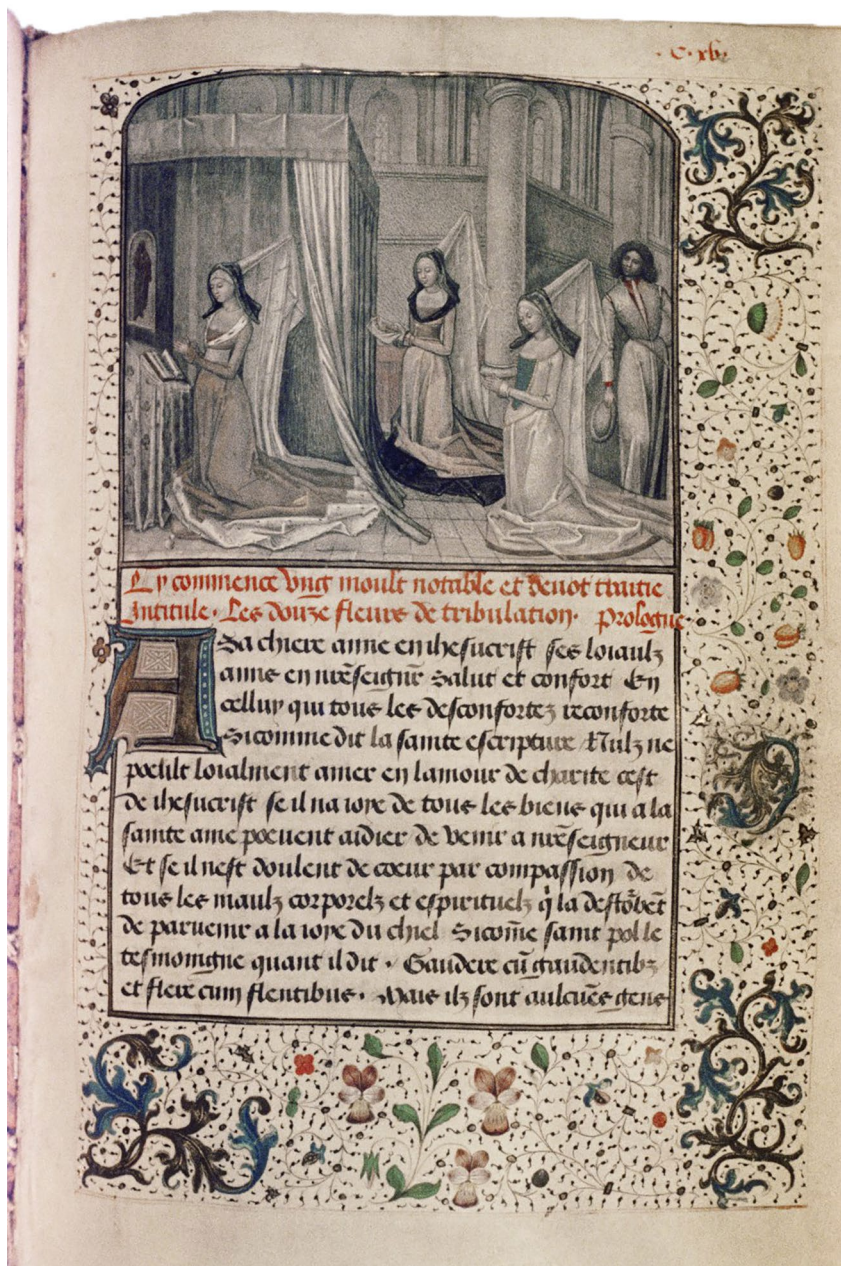 .C.xv.
Cy commence vng moult notable et deuot traitie
Intitule . Les douze fleurs de tribulation . Prologue
A Sa chiere amie en ihesucrist ses loiaulz
amis en nr̄eseignr̄ Salut et confort En
celluy qui tous les desconfortez reconforte
Sicomme dit la sainte escripture Nulz ne
poeult loialment amer en lamour de charite cest
de ihesucrist se il na ioye de tous les biens qui a la
sainte ame poeuent aidier de venir a nr̄eseigneur
Et se il nest doulent de coeur par compassion de
tous les maulz corporelz et espirituelz q̇ la destōbēt
de paruenir a la ioye du chiel Sicom̄e saint pol le
tesmoingne quant il dit . Gaudere cū gaudentibꝫ
et flere cum flentibus . Mais ilz sont aulcūes gens